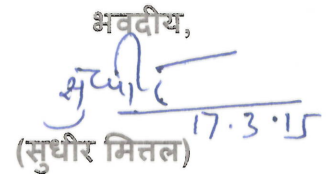 भवदीय,
सुधीर
17.3.15
(सुधीर मित्तल)